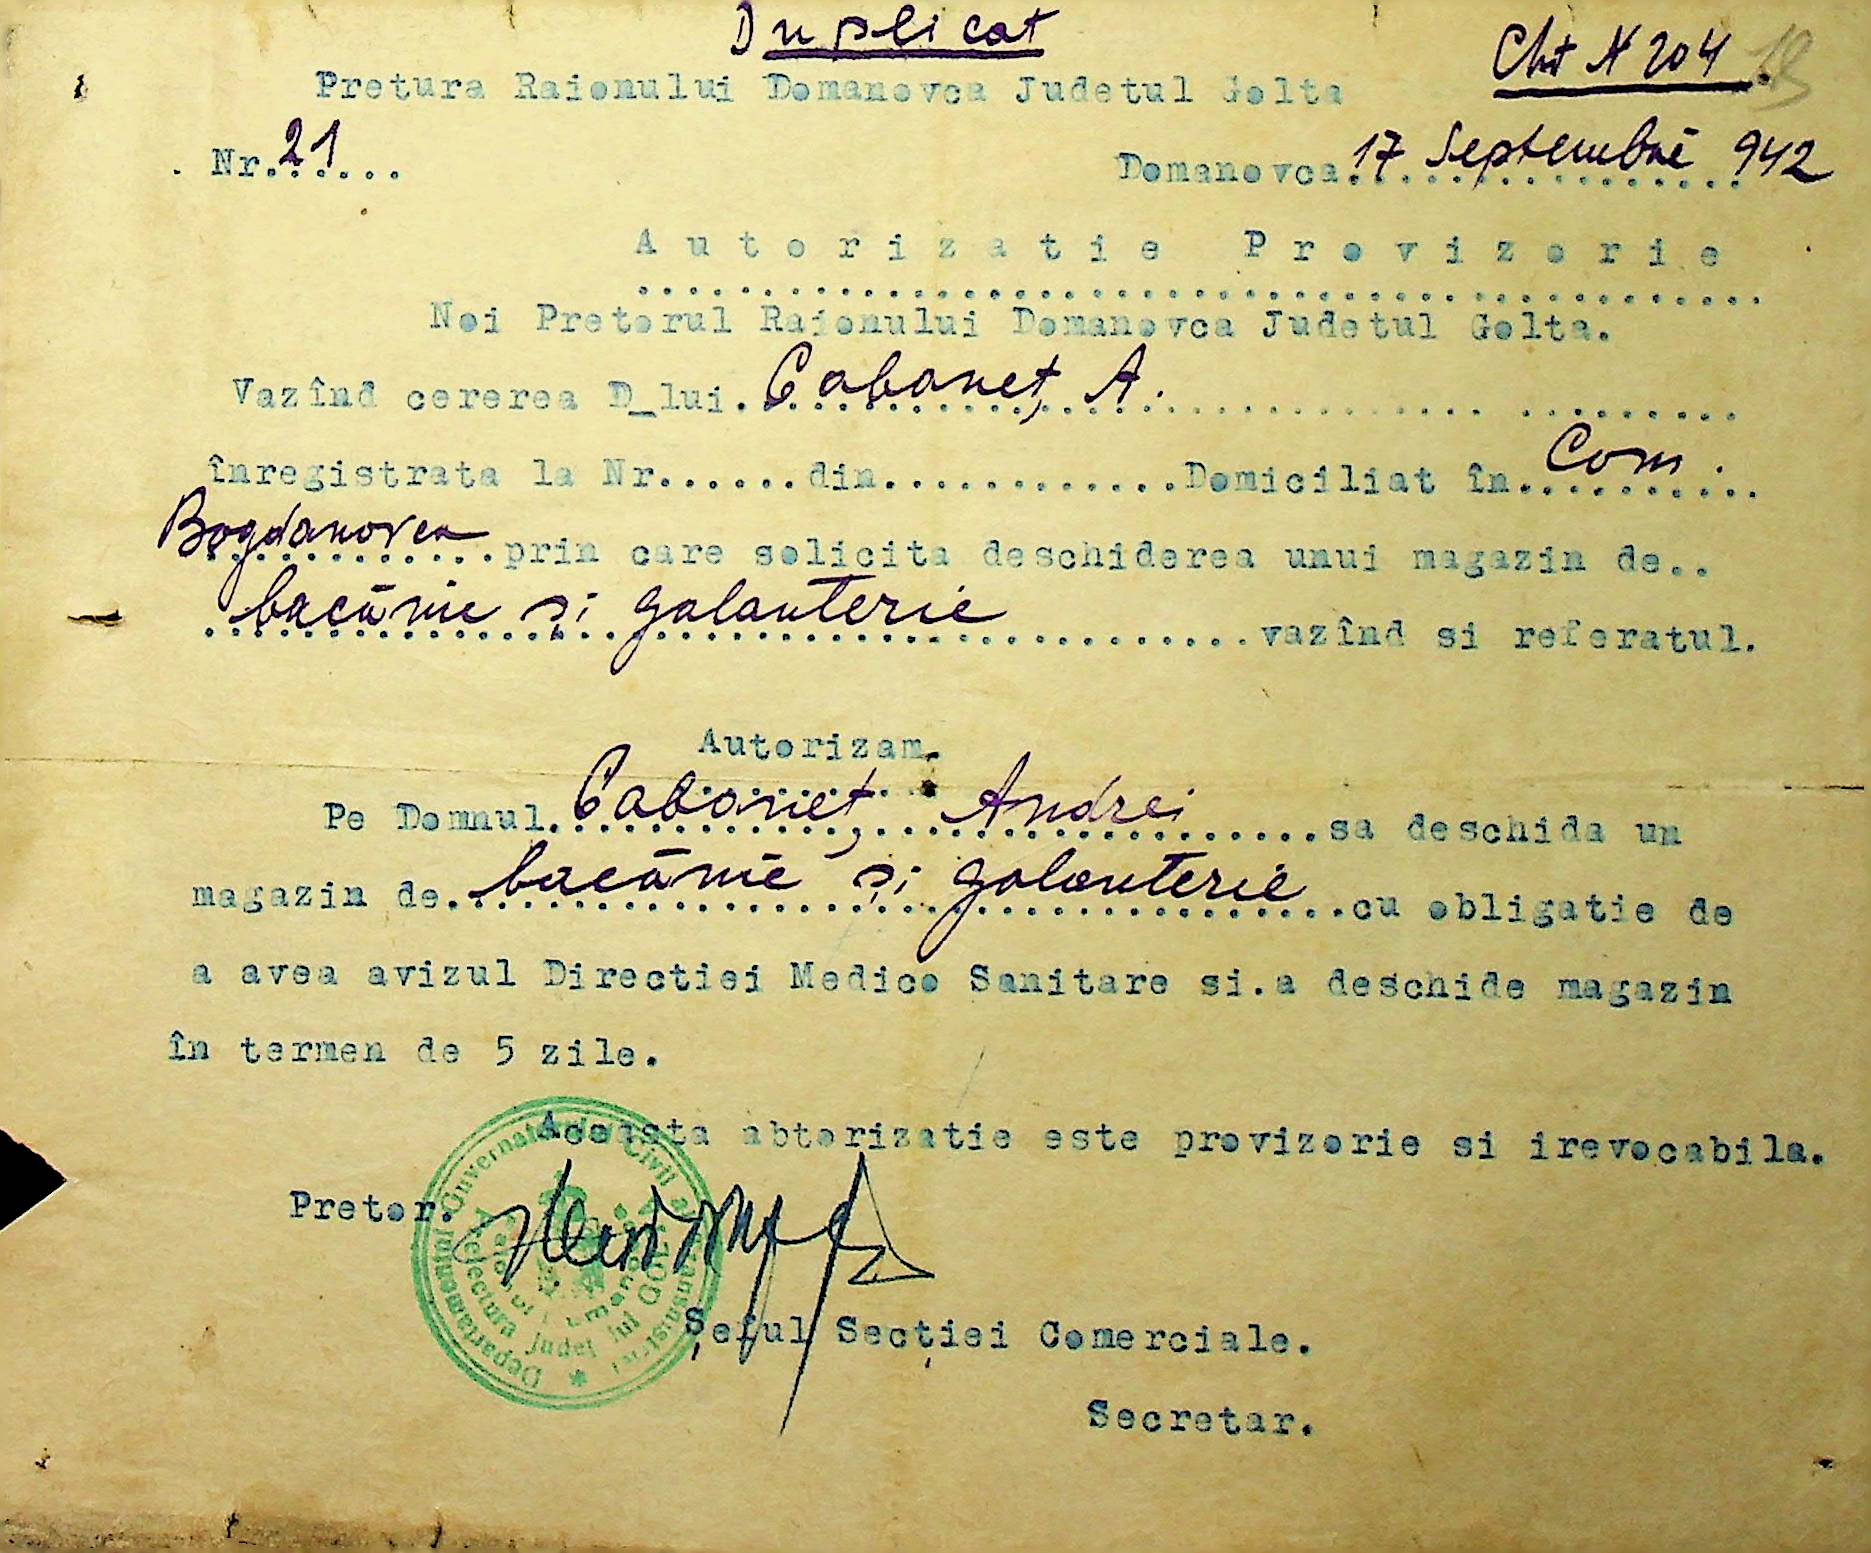 Duplicat
Cht N 204
Pretura Raionului Domanovca Judetul Golta
Nr.21.....
Domanovca.17 Septembrie 942
Autorizatie Provizorie
Noi Pretorul Raionului Domanovca Judetul Golta.
Vazînd cererea D_lui.Cabaneț A.
înregistrata la Nr......din............Domiciliat în.Com.
Bogdanovca prin care solicita deschiderea unui magazin de..
băcănie și galanterie vazînd si referatul.
Autorizam.
Pe Domnul.Cabaneț Andrei sa deschida un
magazin de.băcănie și galanterie cu obligatie de
a avea avizul Directiei Medico Sanitare si.a deschide magazin
în termen de 5 zile.
Aceasta abtorizatie este provizorie si irevocabila.
Pretor.
Departamentul Guvernatorul Civil al Transnistriei
Prefectura județului Golta
Șeful Secției Comerciale.
Secretar.